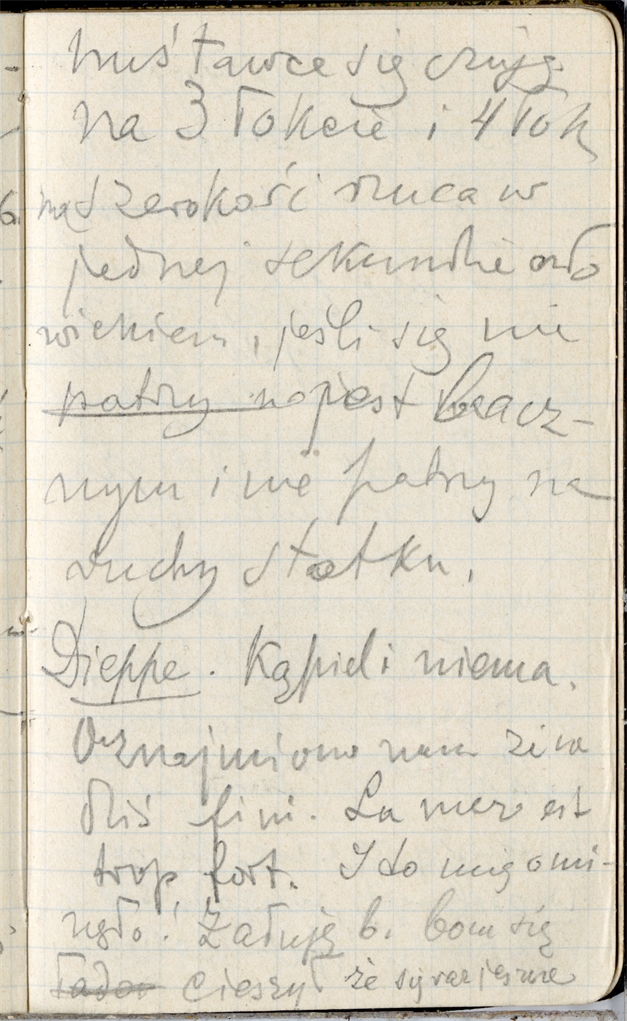 huśtawce się czuję
na 3 łokcie i 4 łok
szerokości rzuca w
jednej sekundzie czło
wiekiem, jeśli się nie
patrzy jest bacz-
nym i nie patrzy na
ruchy statku.
Dieppe. Kąpieli niema.
Oznajmiono nam że na
dziś fini. La mer est
trop fort. I to mię omi-
nęło! Żałuję b. bom się
cieszył że się raz jeszcze